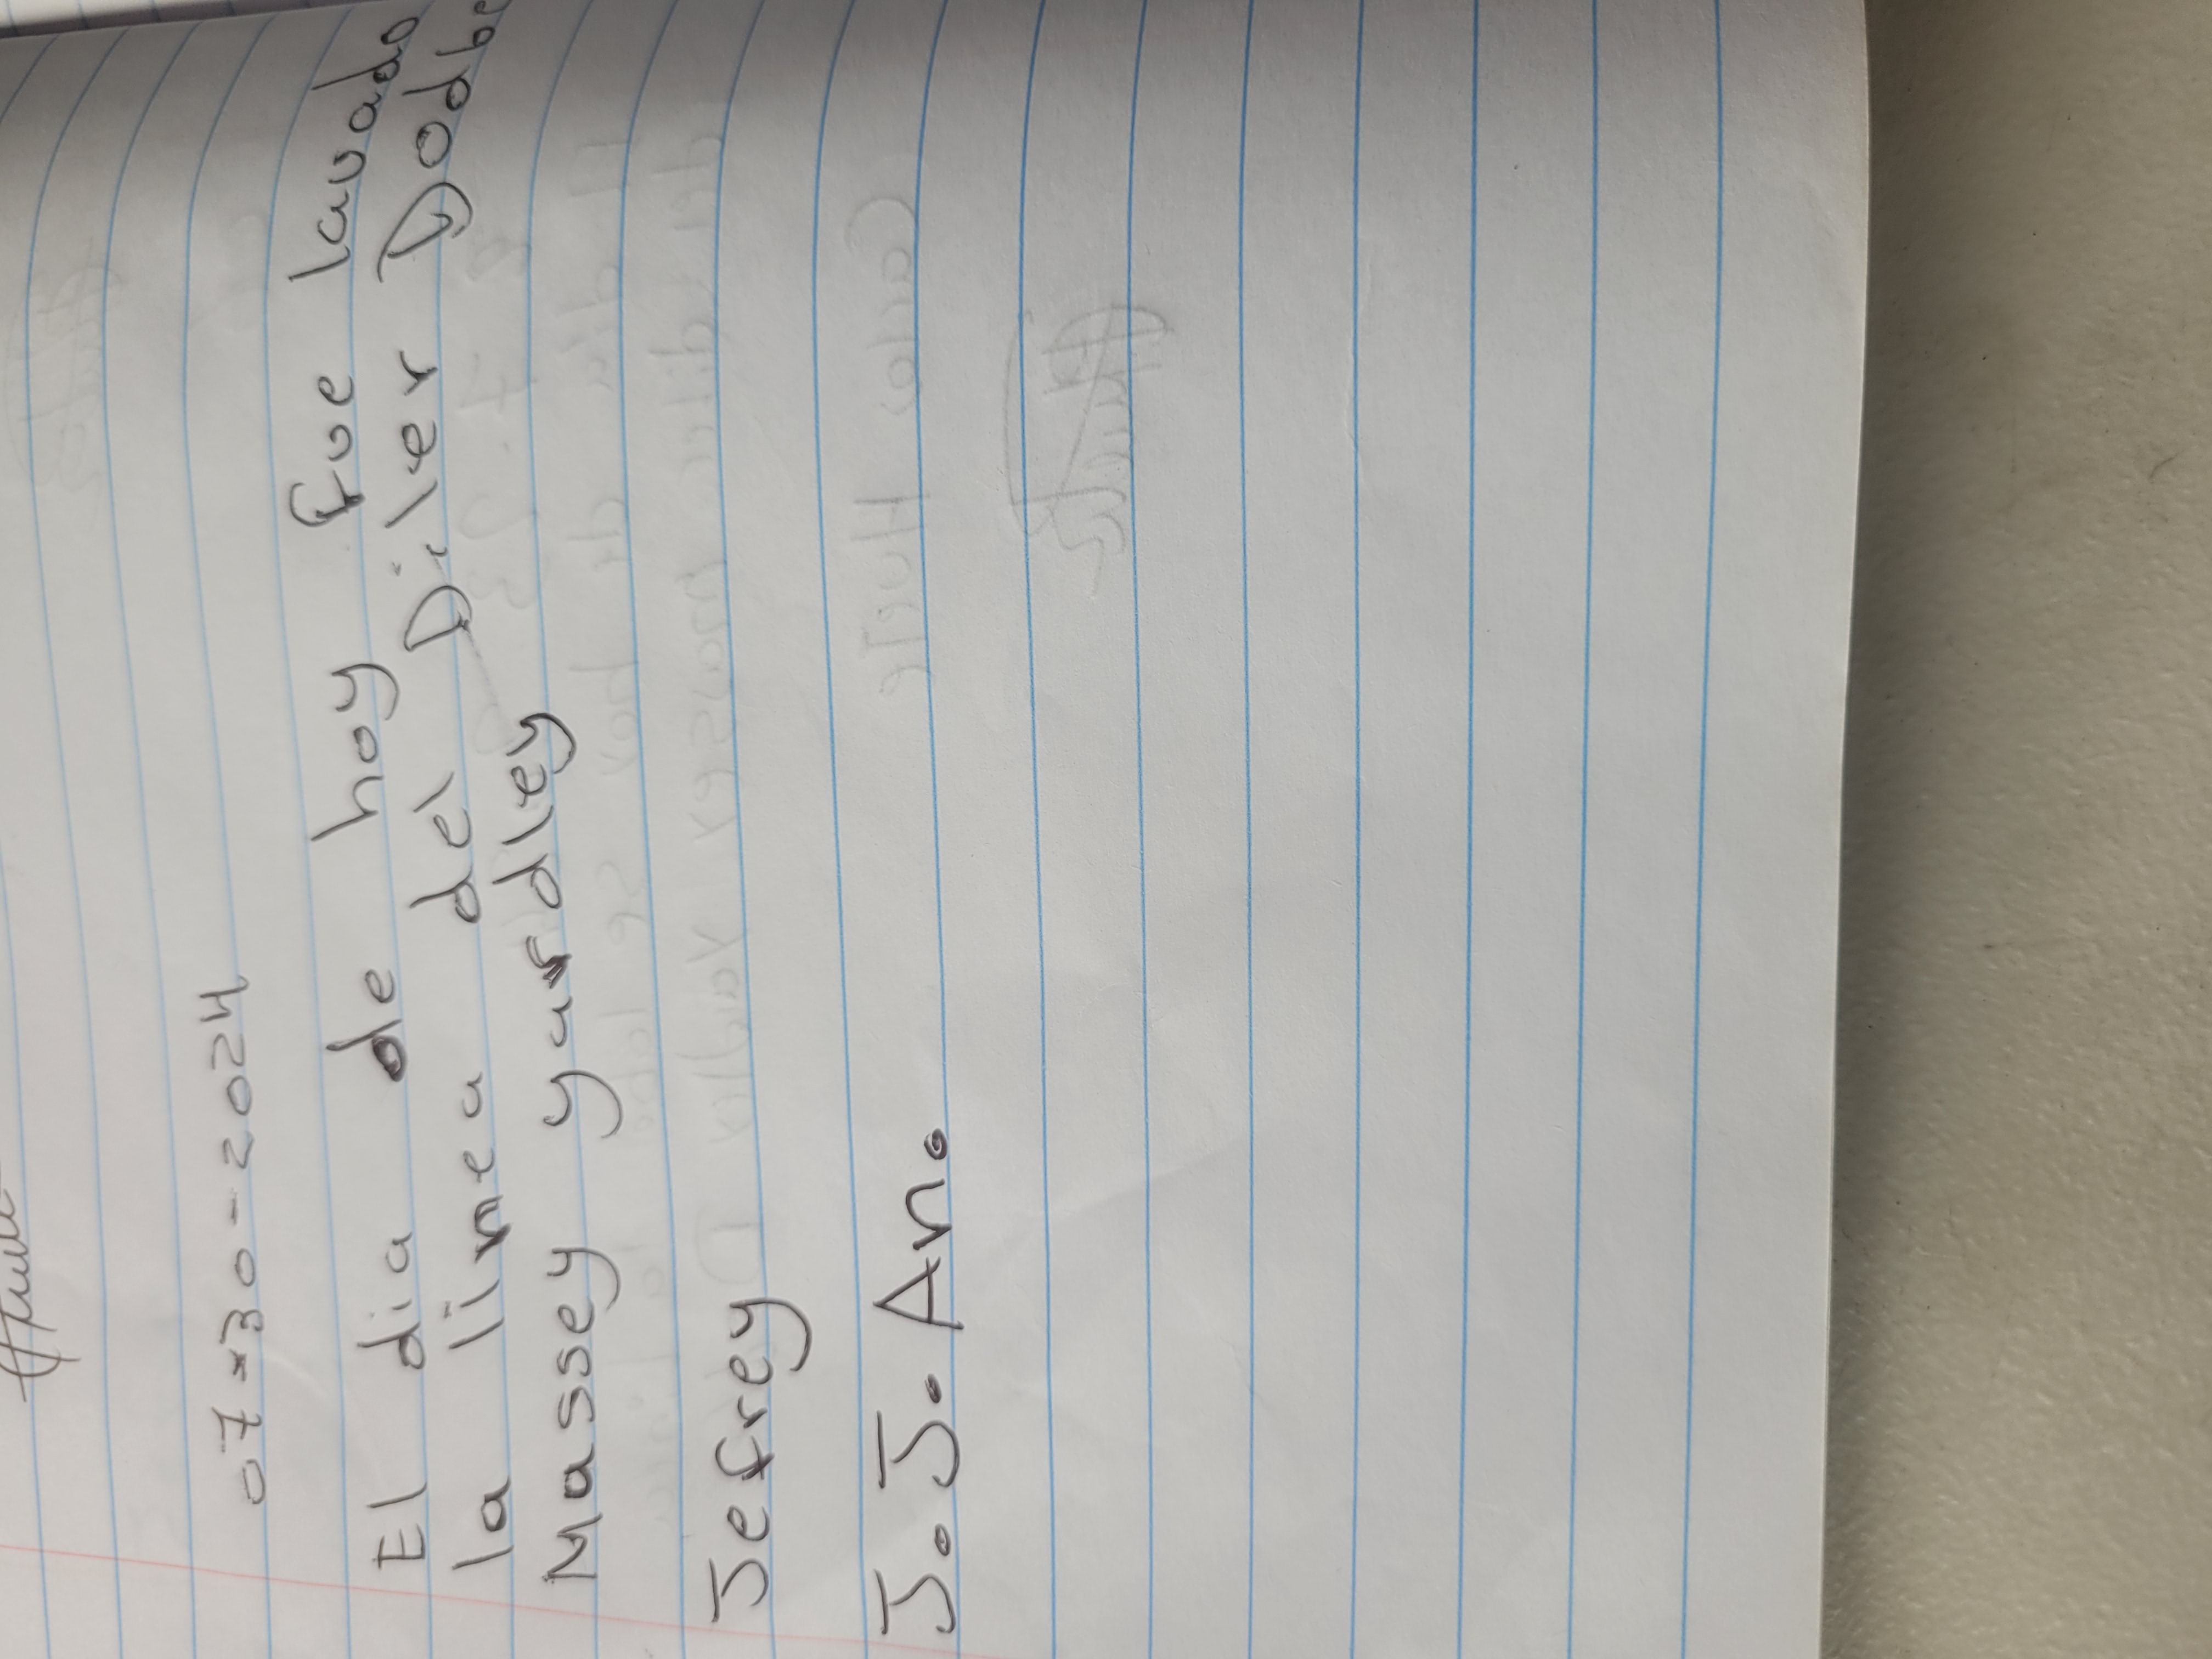 07-30-2024
El dia de hoy fue lavado
la linea del Diler Dodbe
Massey yardley
Jefrey
J. J. An.